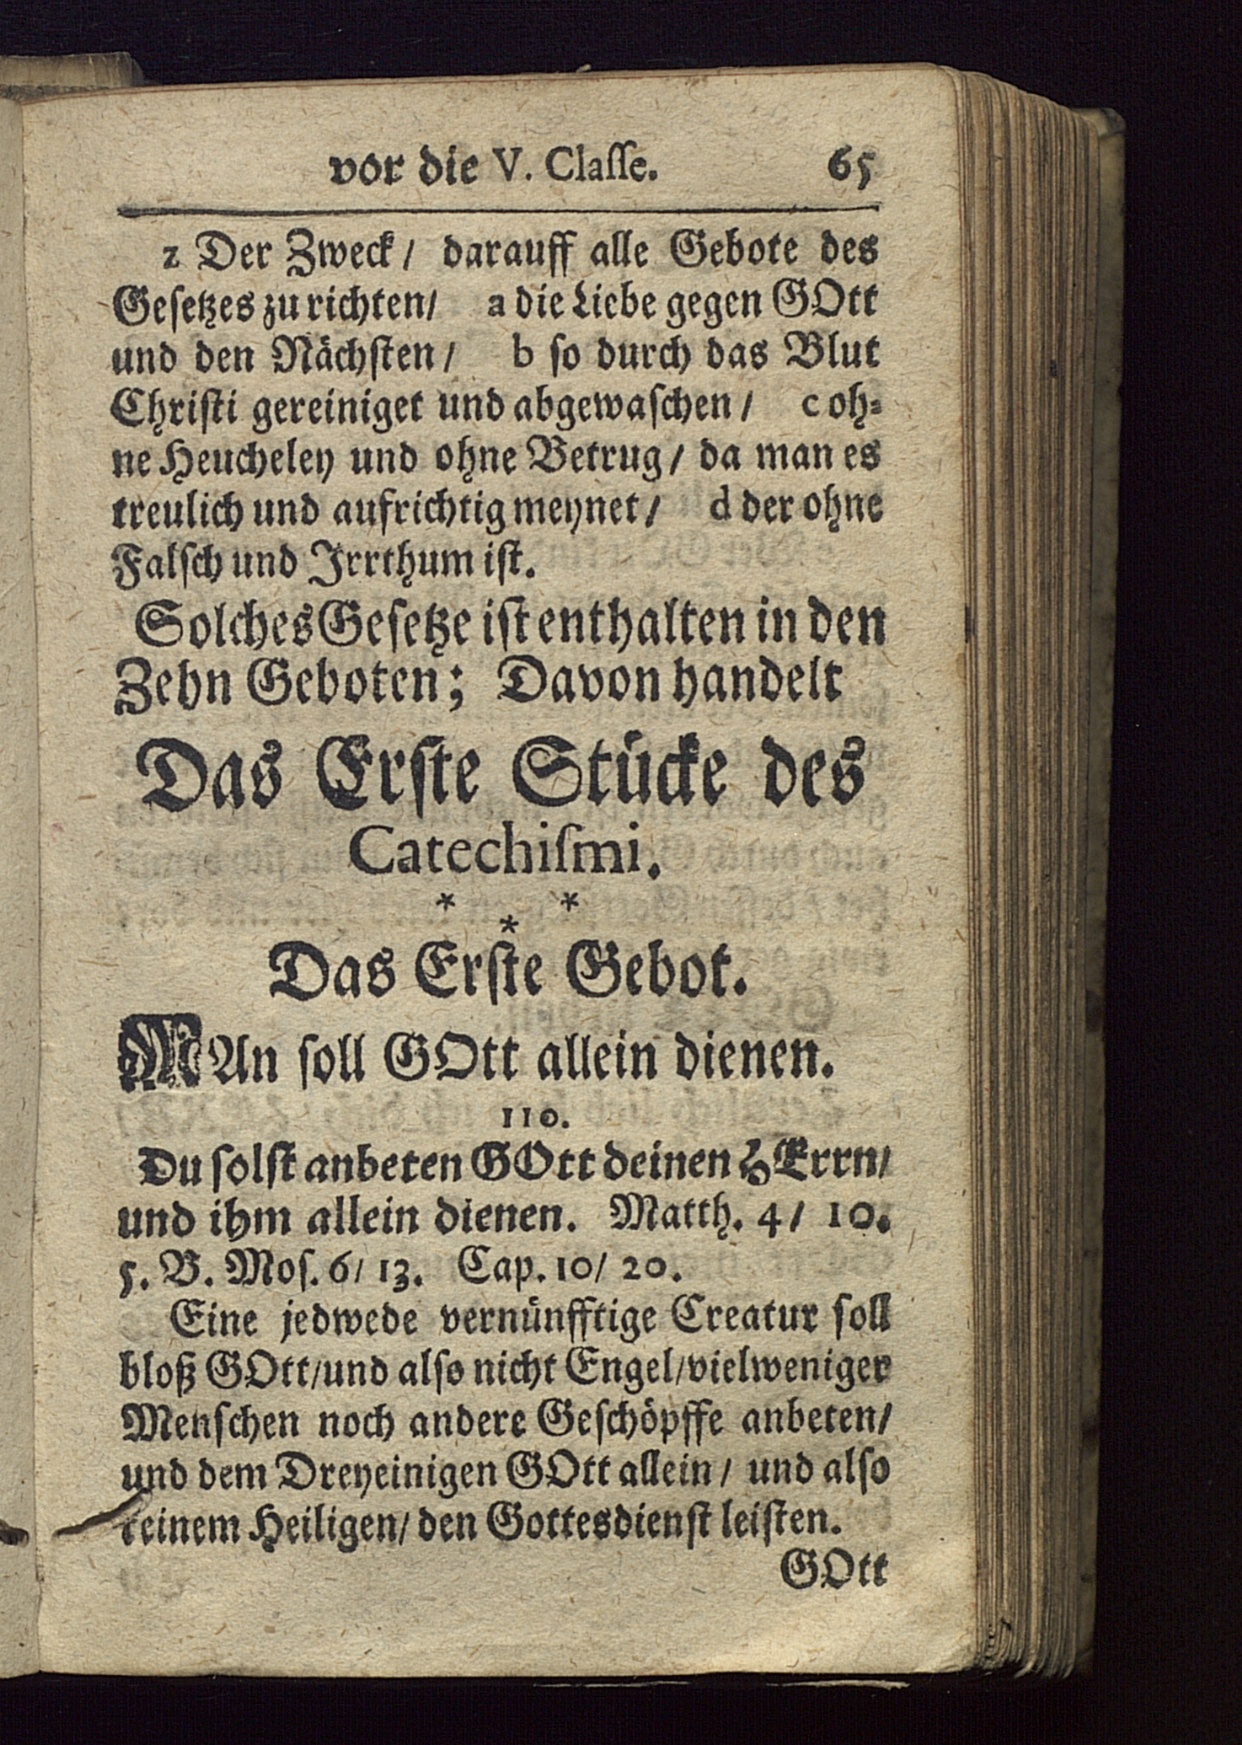 vor die V. Claſſe. 65
z Der Zweck/ darauff alle Gebote des
Geſetzes zu richten/ a die Liebe gegen GOtt
und den Nächſten/ b ſo durch das Blut
Chriſti gereiniget und abgewaſchen/ c oh⸗
ne Heucheley und ohne Betrug/ da man es
treulich und aufrichtig meynet/ d der ohne
Falſch und Irrthum iſt.
Solches Geſetze iſt enthalten in den
Zehn Geboten; Davon handelt
Das Erſte Stücke des
Catechiſmi.
* * *
Das Erſte Gebot.
MAn ſoll GOtt allein dienen.
110.
Du ſolſt anbeten GOtt deinen HErrn/
und ihm allein dienen. Matth. 4/ 10.
5. B. Moſ. 6/ 13. Cap. 10/ 20.
Eine jedwede vernünfftige Creatur ſoll
bloß GOtt/und alſo nicht Engel/vielweniger
Menſchen noch andere Geſchöpffe anbeten/
und dem Dreyeinigen GOtt allein/ und alſo
keinem Heiligen/ den Gottesdienſt leiſten.
GOtt